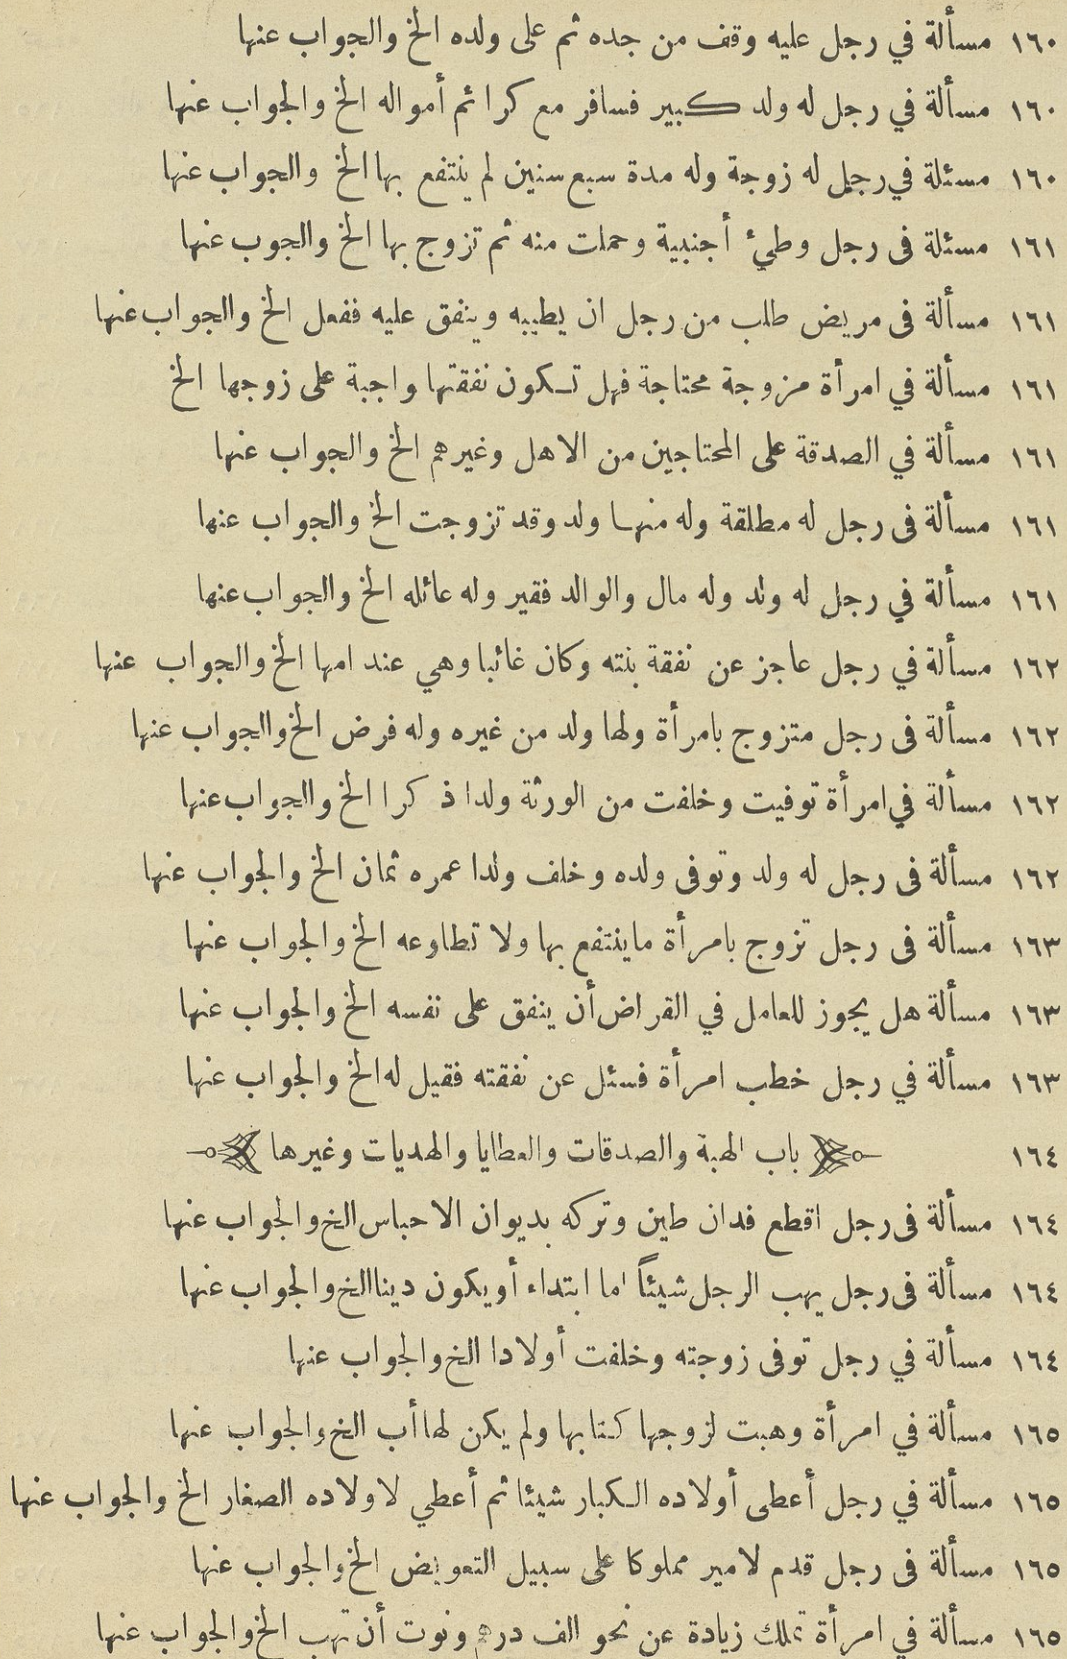 ١٦٠ مسألة في رجل عليه وقف من جده ثم على ولده الخ والجواب عنها
١٦٠ مسألة في رجل له ولد كبير فسافر مع كرائم أمواله الخ والجواب عنها
١٦٠ مسئلة في رجل له زوجة وله مدة سبع سنين لم ينتفع بها الخ والجواب عنها
١٦١ مسئلة فى رجل وطئ أجنبية وحملت منه ثم تزوج بها الخ والجوب عنها
١٦١ مسألة فى مريض طلب من رجل ان يطببه وينفق عليه ففعل الخ والجواب عنها
١٦١ مسألة في امرأة مزوجة محتاجة فهل تكون نفقتها واجبة على زوجها الخ
١٦١ مسألة في الصدقة على المحتاجين من الاهل وغيرهم الخ والجواب عنها
١٦١ مسألة فى رجل له مطلقة وله منها ولد وقد تزوجت الخ والجواب عنها
١٦١ مسألة في رجل له ولد وله مال والوالد فقير وله عائله الخ والجواب عنها
١٦٢ مسألة في رجل عاجز عن نفقة بنته وكان غائبا وهي عند امها الخ والجواب عنها
١٦٢ مسألة فى رجل متزوج بامرأة ولها ولد من غيره وله فرض الخ والجواب عنها
١٦٢ مسألة في امرأة توفيت وخلفت من الورثة ولدا ذكرا الخ والجواب عنها
١٦٢ مسألة فى رجل له ولد وتوفى ولده وخلف ولدا عمره ثمان الخ والجواب عنها
١٦٣ مسألة فى رجل تزوج بامرأة ما ينتفع بها ولا تطاوعه الخ والجواب عنها
١٦٣ مسألة هل يجوز للعامل في القراض أن ينفق على نفسه الخ والجواب عنها
١٦٣ مسألة في رجل خطب امرأة فسئل عن نفقته فقيل له الخ والجواب عنها
١٦٤ باب الهبة والصدقات والعطايا والهديات وغيرها
١٦٤ مسألة فى رجل اقطع فدان طين وتركه بديوان الاحباس الخ والجواب عنها
١٦٤ مسألة فى رجل يهب الرجل شيئاً اما ابتداء أو يكون دينا الخ والجواب عنها
١٦٤ مسألة في رجل توفى زوجته وخلفت أولادا الخ والجواب عنها
١٦٥ مسألة في امرأة وهبت لزوجها كتابها ولم يكن لها أب الخ والجواب عنها
١٦٥ مسألة في رجل أعطى أولاده الكبار شيئا ثم أعطي لاولاده الصغار الخ والجواب عنها
١٦٥ مسألة فى رجل قدم لامير مملوكا على سبيل التعويض الخ والجواب عنها
١٦٥ مسألة في امرأة تملك زيادة عن نحو الف درهم ونوت أن تهب الخ والجواب عنها